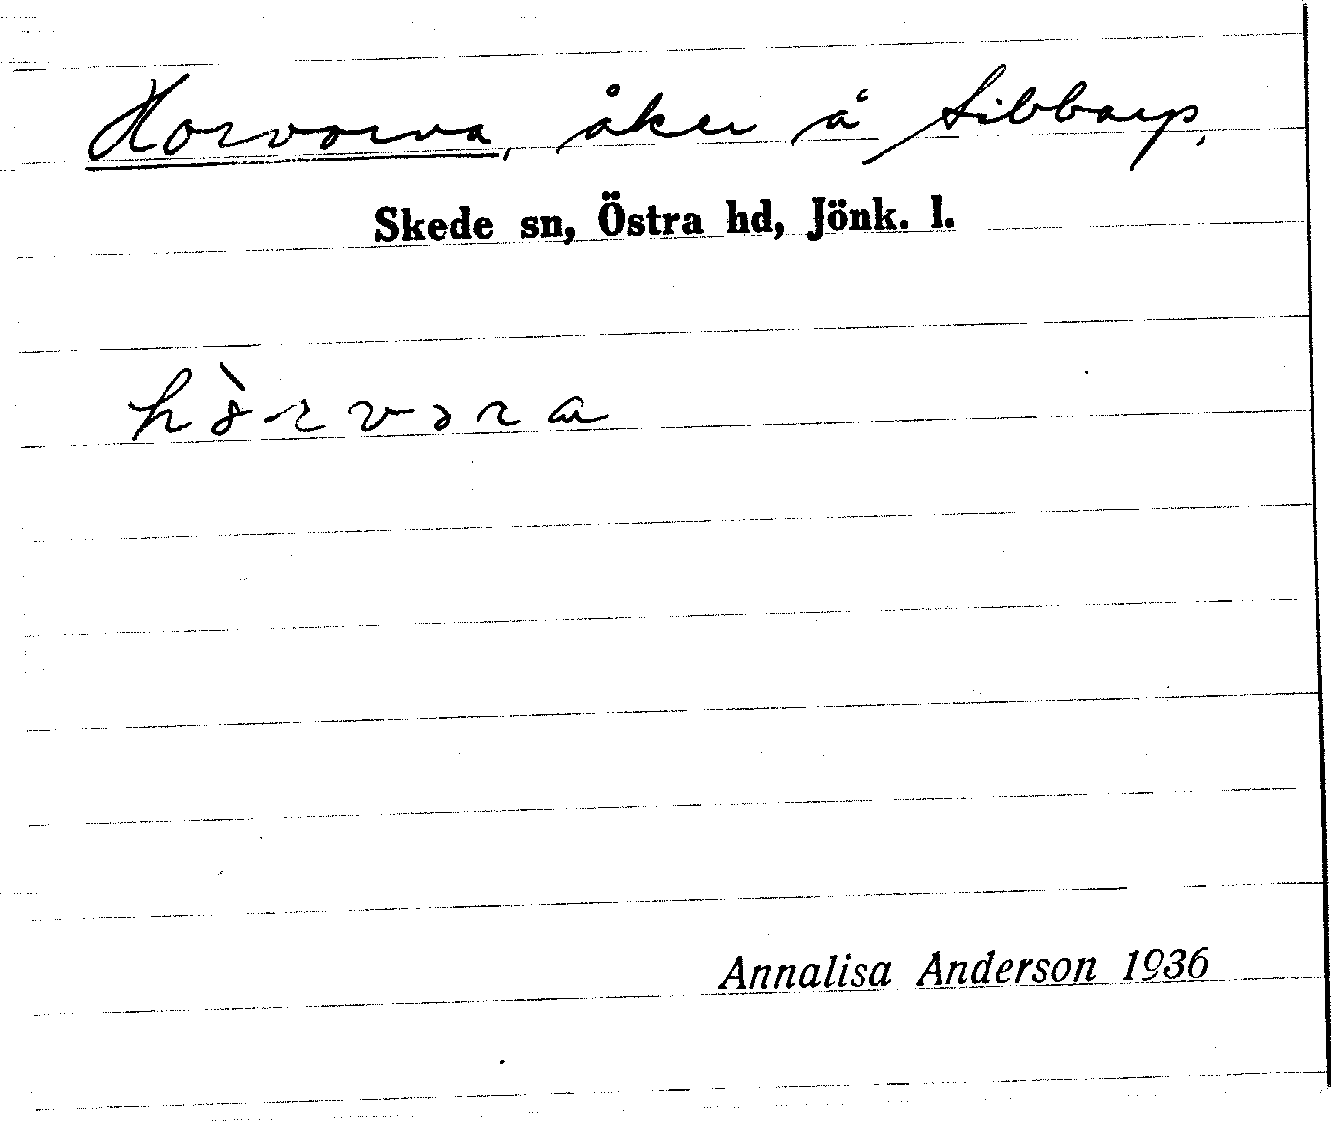 Horvorna, åker å Sibbarp,
Skede sn, Östra hd, Jönk. l.
Annalisa Anderson 1936